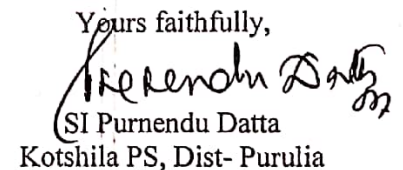 Yours faithfully,
Purnendu Datta
SI Purnendu Datta
Kotshila PS, Dist- Purulia